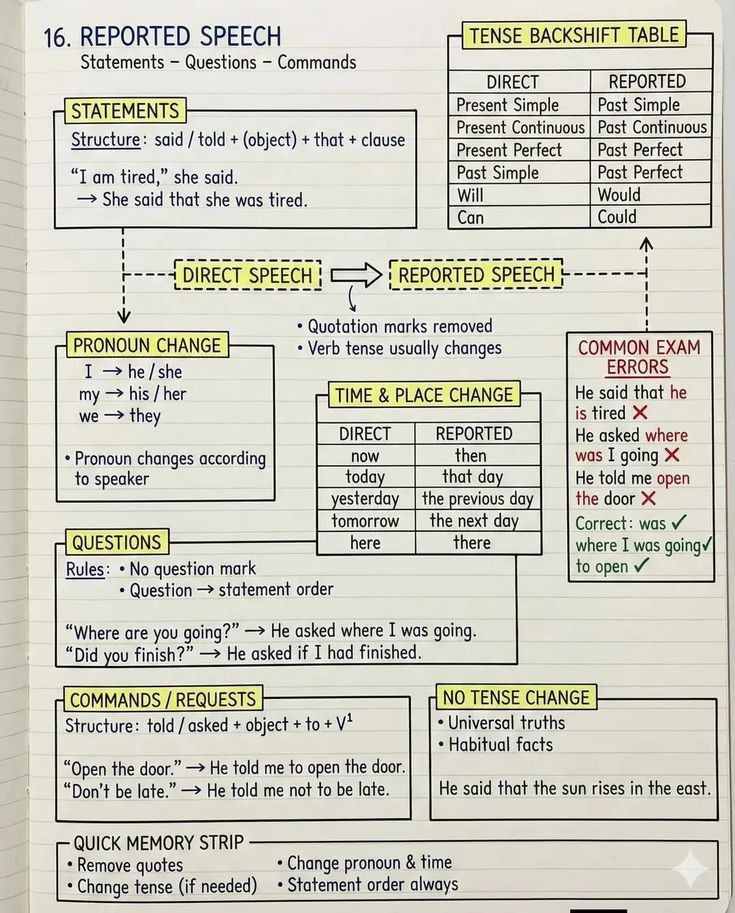 16. REPORTED SPEECH
Statements – Questions – Commands
STATEMENTS
Structure: said / told + (object) + that + clause
“I am tired,” she said.
→ She said that she was tired.
TENSE BACKSHIFT TABLE
DIRECT REPORTED
Present Simple Past Simple
Present Continuous Past Continuous
Present Perfect Past Perfect
Past Simple Past Perfect
Will Would
Can Could
DIRECT SPEECH ⇒ REPORTED SPEECH
• Quotation marks removed
• Verb tense usually changes
PRONOUN CHANGE
I → he / she
my → his / her
we → they
• Pronoun changes according
to speaker
TIME & PLACE CHANGE
DIRECT REPORTED
now then
today that day
yesterday the previous day
tomorrow the next day
here there
COMMON EXAM
ERRORS
He said that he
is tired ✗
He asked where
was I going ✗
He told me open
the door ✗
Correct: was ✓
where I was going ✓
to open ✓
QUESTIONS
Rules: • No question mark
• Question → statement order
“Where are you going?” → He asked where I was going.
“Did you finish?” → He asked if I had finished.
COMMANDS / REQUESTS
Structure: told / asked + object + to + V¹
“Open the door.” → He told me to open the door.
“Don’t be late.” → He told me not to be late.
NO TENSE CHANGE
• Universal truths
• Habitual facts
He said that the sun rises in the east.
QUICK MEMORY STRIP
• Remove quotes
• Change tense (if needed)
• Change pronoun & time
• Statement order always